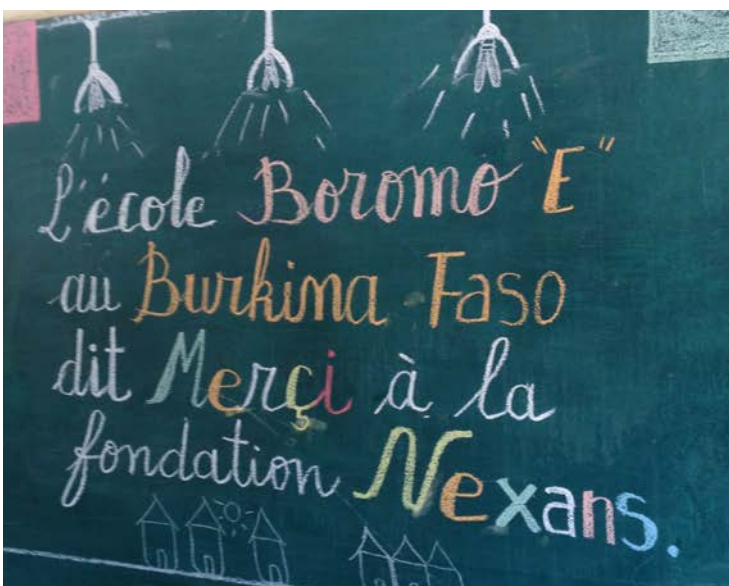 L'école Boromo "E"
au Burkina Faso
dit Merçi à la
fondation Nexans.